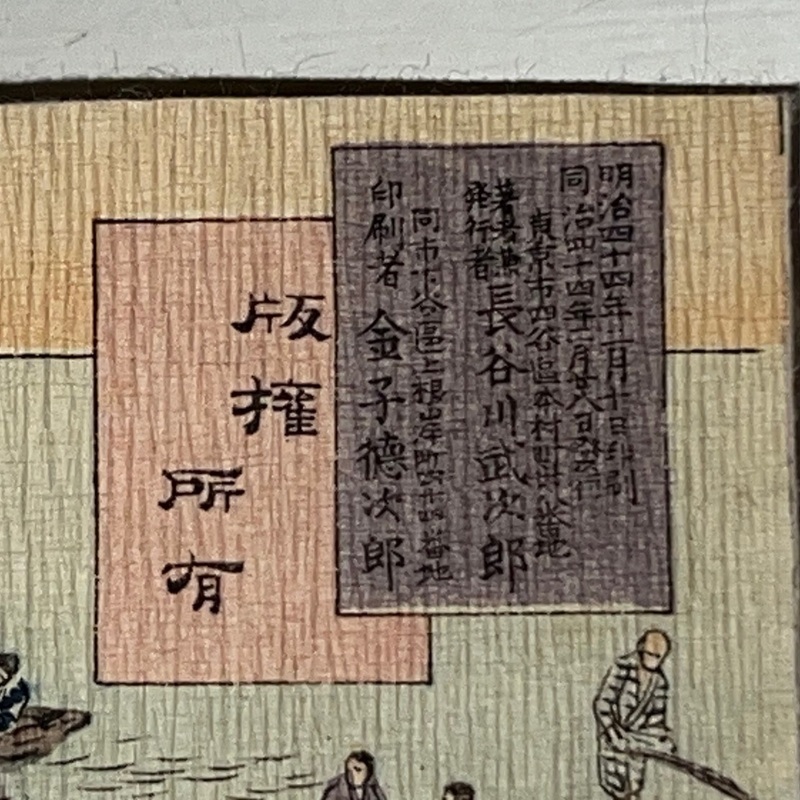 明治四十四年二月十日印刷
同治四十四年二月廿八日発行
東京市四谷區本村町卅八番地
著者兼
発行者
長谷川武次郎
同市下谷區上根岸町
番地
印刷者 金子徳次郎
版權
所有